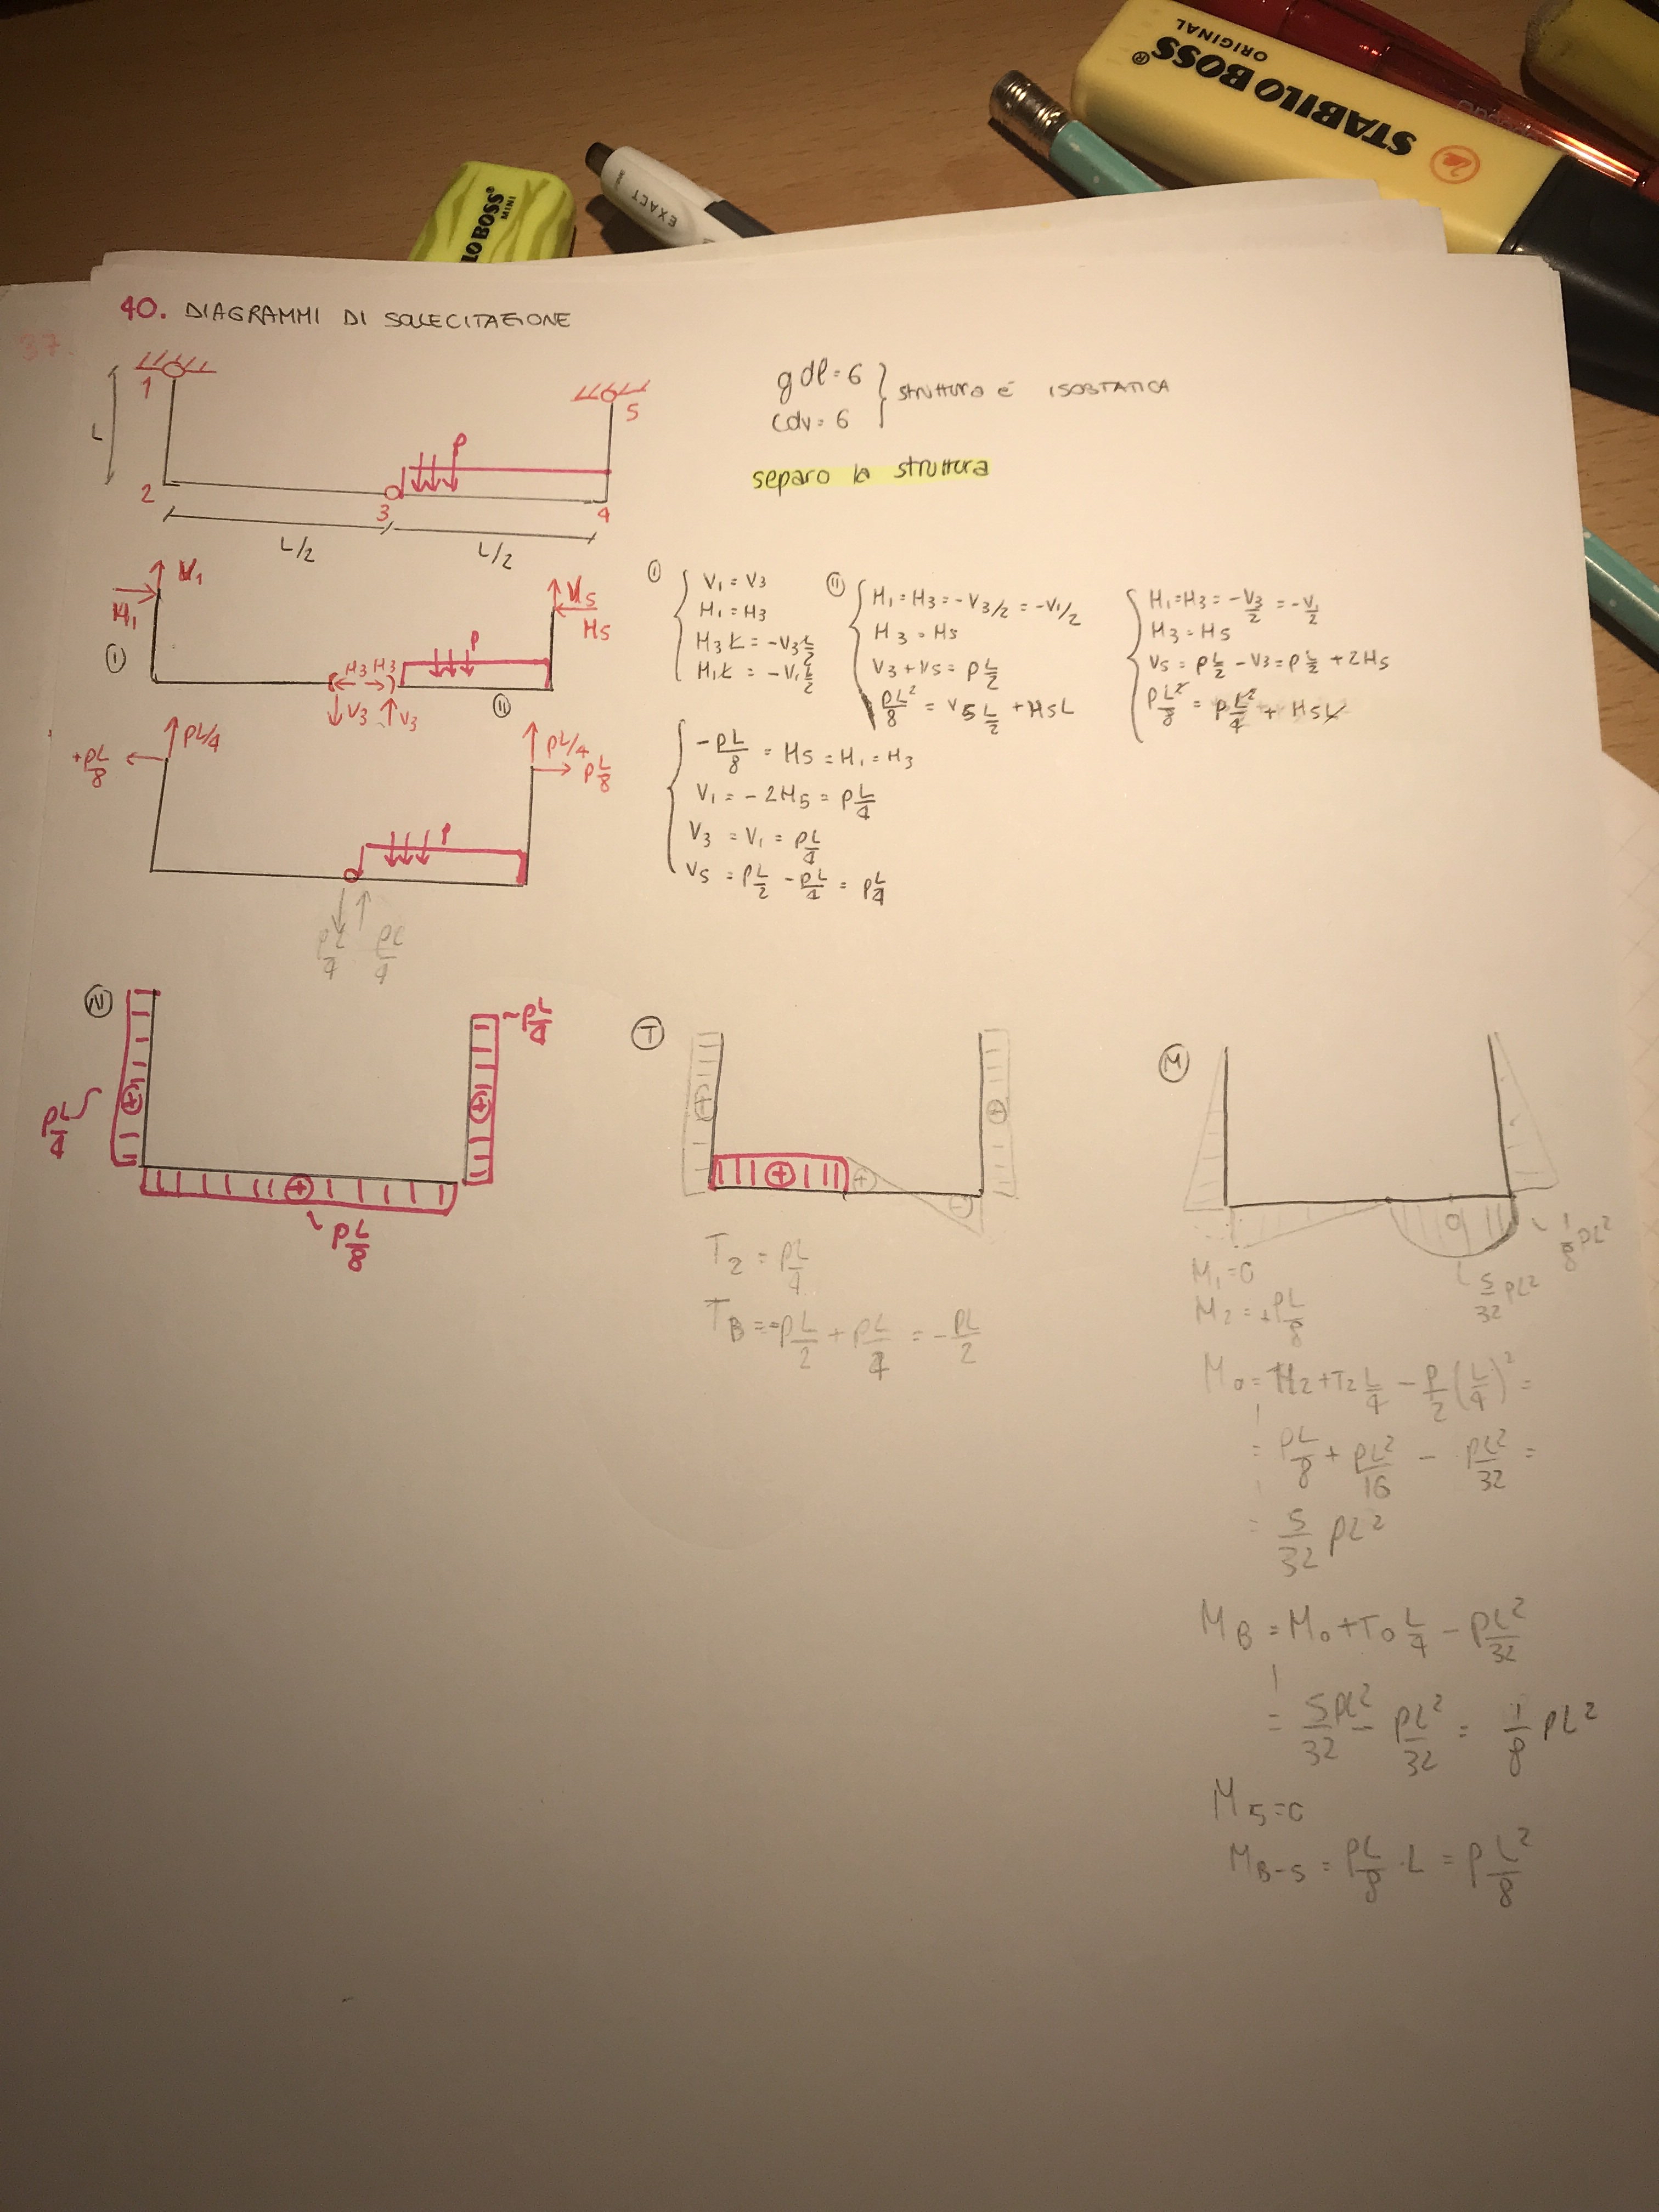 STABILO BOSS
ORIGINAL
®
IO BOSS®
MINI
EXACT
37.
40. DIAGRAMMI DI SOLLECITAZIONE
1
5
L
P
2
3
4
L/2
L/2
gdl = 6
cdv = 6
struttura è ISOSTATICA
separo la struttura
V1
H1
V5
H5
P
H3 H3
V3 V3
I
II
I
V1 = V3
H1 = H3
H3L = -V3 L/2
H1L = -V1 L/2
II
H1 = H3 = -V3/2 = -V1/2
H3 = H5
V3 + V5 = P L/2
PL²/8 = V5 L/2 + H5L
H1 = H3 = -V3/2 = -V1/2
H3 = H5
V5 = P L/2 - V3 = P L/2 + 2H5
P L²/8 = P L²/4 + H5L
-PL/8 = H5 = H1 = H3
V1 = -2H5 = P L/4
V3 = V1 = PL/4
V5 = P L/2 - PL/4 = P L/4
PL/4
+PL/8
PL/4
P L/8
P
PL/4 PL/4
N
PL/4
+
+
+
~P L/4
P L/8
T
+
+
+
-
+
T2 = PL/4
TB = -PL/2 + PL/4 = -PL/2
M
0
1/8 PL²
5/32 PL²
M1 = 0
M2 = +PL/8
M0 = M2 + T2 L/4 - P/2 (L/4)² =
= PL/8 + PL²/16 - PL²/32 =
= 5/32 PL²
MB = M0 + T0 L/4 - PL²/32
= 5PL²/32 - PL²/32 = 1/8 PL²
M5 = 0
MB-5 = PL/8 · L = P L²/8